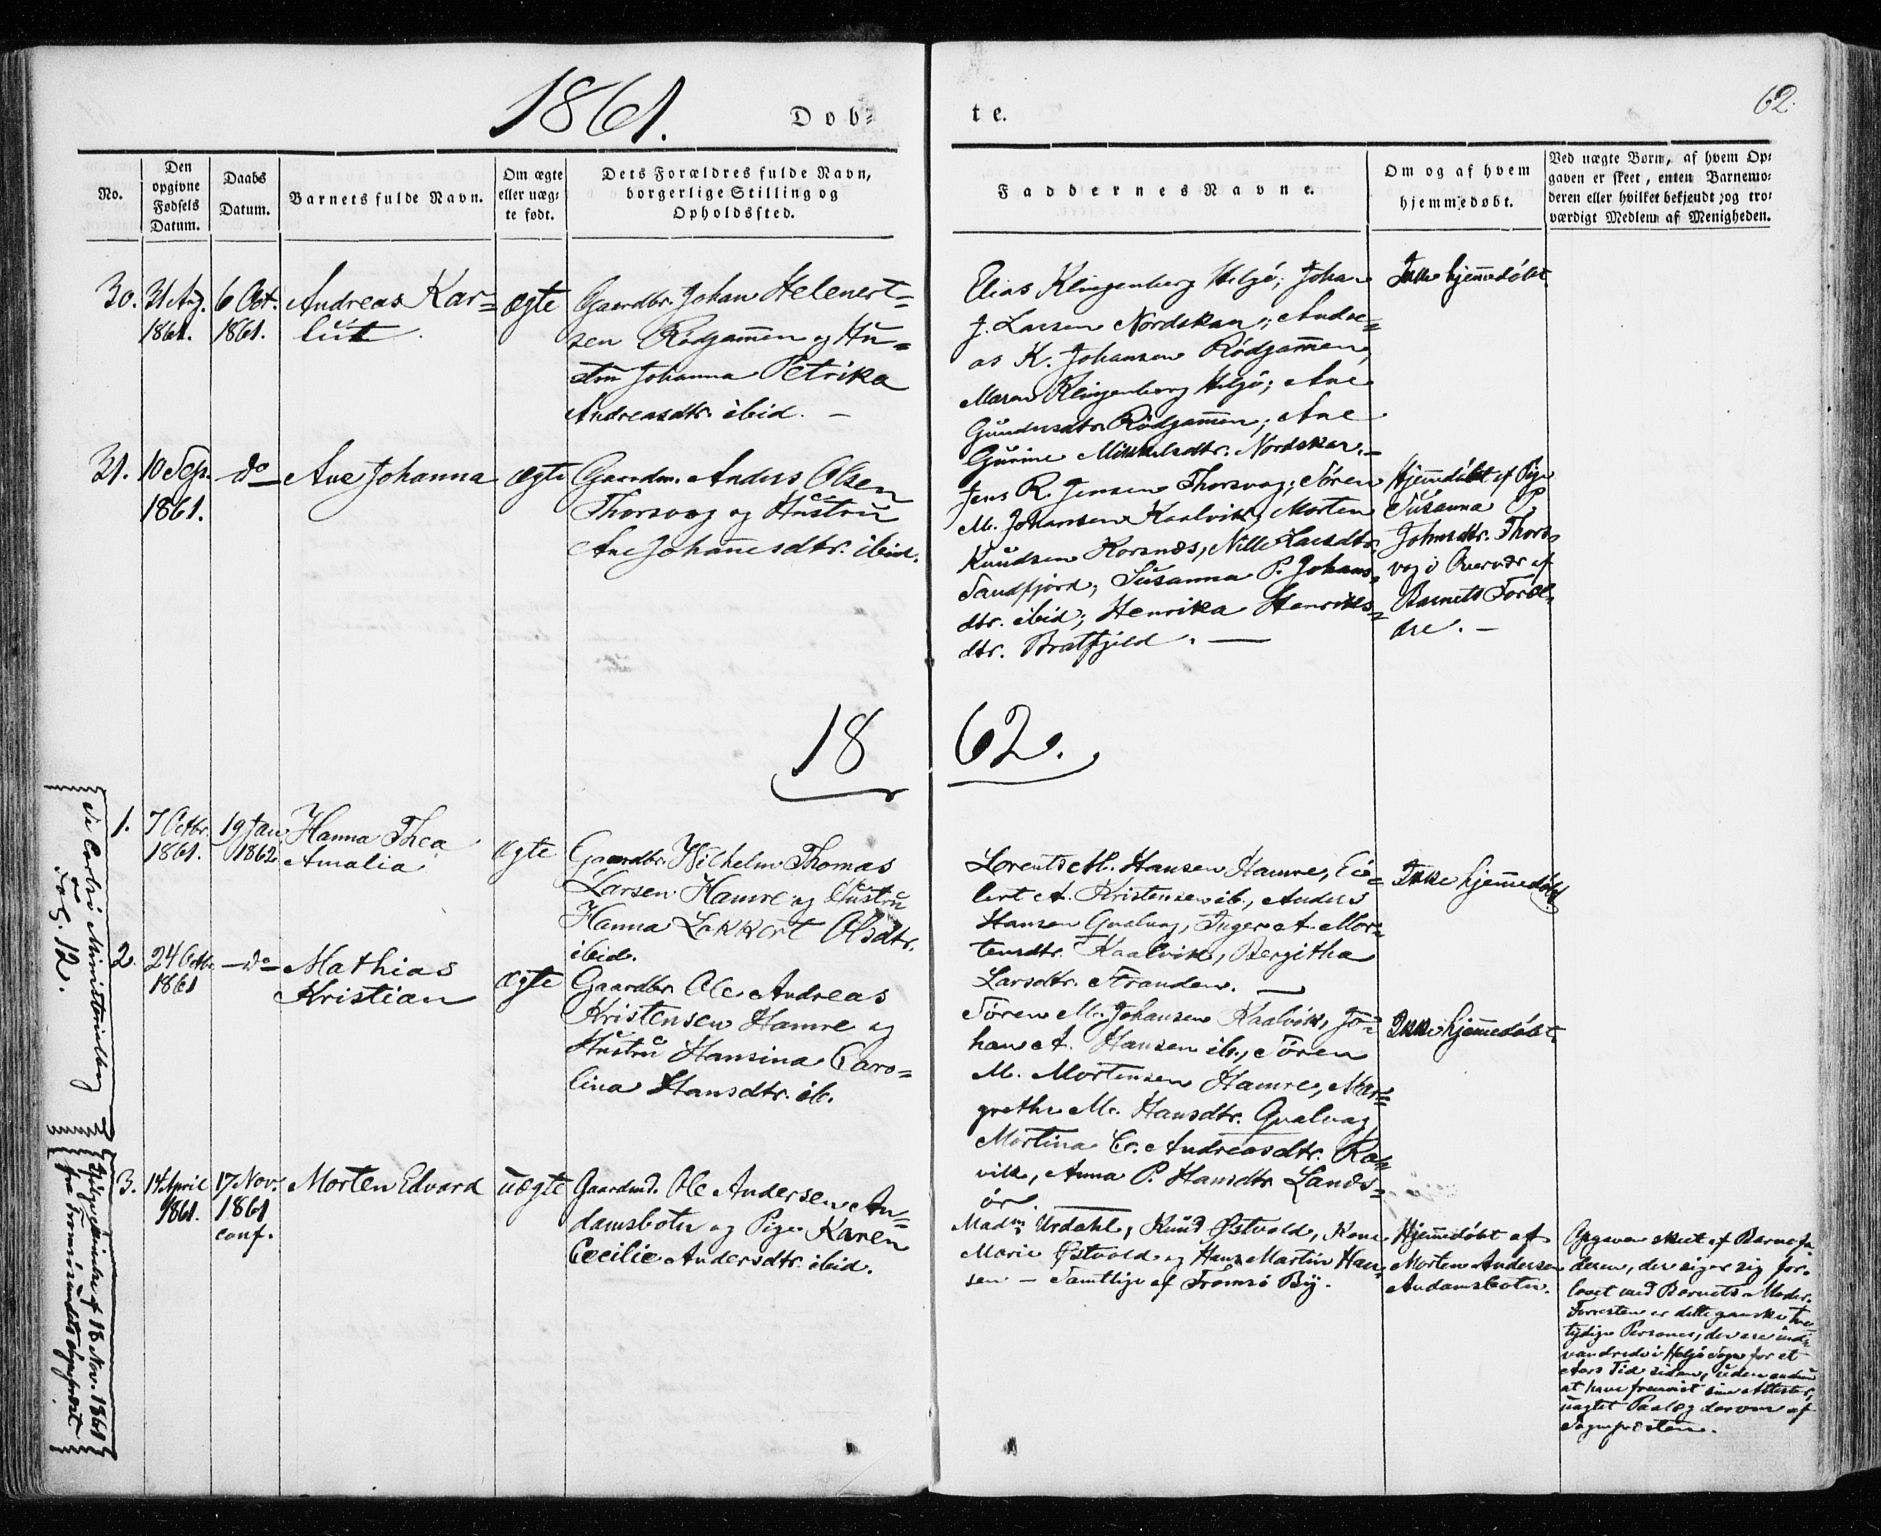 1861.
Døb-
te.
62.
No.
Den
opgivne
Fødsels
Datum.
Daabs
Datum.
Barnets fulde Navn.
Om ægte
eller uæg-
te født.
Dets Forældres fulde Navn,
borgerlige Stilling og
Opholdssted.
Faddernes Navne.
Om og af hvem
hjemmedøbt.
Ved uægte Børn, af hvem Op-
gaven er skeet, enten Barnemo-
deren eller hvilket bekjendt og tro-
værdigt Medlem af Menigheden.
30.
31 Aug.
1861.
6 Oct.
1861.
Andreas Kar-
ægte
Gaardbr. Johan Helenert-
sen Rødgammen og Hu-
stru Johanna Petrika
Andreasdtr. ibid. —
Elias Klingenberg Helgö; Johan
J. Larsen Nordskar; Andre-
as K. Johansen Rödgammen,
Maren Klingenberg Helgö; Ane
Gundersdtr. Rödgammen; Ane
Gurine Mikkelsdtr. Nordskar. —
Ikke hjemmedöbt
31.
10 Sep.
1861.
—do—
Ane Johanna
ægte
Gaardm. Anders Olsen
Thorsvag og Hustru
Ane Johannesdtr. ibid.
Jens R. Jensen Thorsvag; Sören
M. Johansen Kaalvik, Morten
Knudsen Korsnæs, Nille Larsdtr.
Sandfjord, Susanna P. Johans-
dtr. ibid; Henrika Henriks-
dtr. Bratfjeld. —
Hjemmedöbt af Pige
Susanna P.
Johnsdtr. Thors-
vag i Overvær af
Barnets Foræl-
dre. —
18
62.
1.
7 Octbr.
1861.
19 Jan.
1862
Hanna Thea
Amalia
ægte
Gaardbr. Wilhelm Thomas
Larsen Hamre og Hustru
Hanna Lekkert Olsdtr.
ibid.
Lorents M. Hansen Hamre, Ei-
lert A. Kristensen ib., Anders
Hansen Qvalvag, Inger A. Mor-
tensdtr. Kaalvik, Bergitha
Larsdtr. Stranden. —
Ikke hjemmedöbt
2.
24 Octb.
1861
—do—
Mathias
Kristian
ægte
Gaardbr. Ole Andreas
Kristensen Hamre og
Hustru Hansina Caro-
lina Hansdtr. ib.
Sören M. Johansen Kaalvik, Jo-
han A. Hansen ib., Sören
M. Mortensen Hamre, Mar-
grethe M. Hansdtr. Qvalvag,
Martina C. Andreasdtr. Kal-
vik, Anna P. Hansdtr. Lands-
ör.
Ikke hjemmedöbt
3.
14 April
1861.
17 Nov.
1861
conf.
Morten Edvard
uægte
Gaardmd. Ole Andersen An-
damsboten og Pige Karen
Cecilie Andersdtr. ibid.
Madm Urdahl, Knud Østvold, Kone
Marie Østvold og Hans Martin Han-
sen — Samtlige af Tromsö By.
Hjemmedöbt af
Morten Andersen
Andamsboten.
Opgaven skeet af Barnefa-
deren, der siger sig for-
lovet med Barnets Moder.
Forresten er dette ganske tve-
tydige Personer, der ere ind-
vandrede i Helgö Sogn for et
Aars Tid siden, uden endnu
at have fremvist sine Attester,
uagtet Paalæg derom af
Sognepræsten.
de Carlsö Ministerialbog
Fol. 12.
Tilkjeginelse af 18 Nov. 1861
fra Tromsösundets Sognepræst